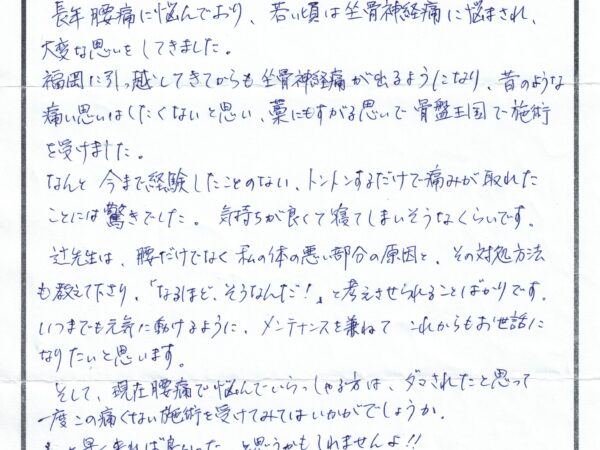 長年腰痛に悩んでおり、若い頃は坐骨神経痛に悩まされ、
大変な思いをしてきました。
福岡に引っ越してきてからも坐骨神経痛が出るようになり、昔のような
痛い思いはしたくないと思い、藁にもすがる思いで骨盤王国で施術
を受けました。
なんと今まで経験したことのない、トントンするだけで痛みが取れた
ことには驚きでした。気持ちが良くて寝てしまいそうなくらいです。
辻先生は、腰だけでなく私の体の悪い部分の原因と、その対処方法
も教えて下さり、「なるほど、そうなんだ!」と考えさせられることばかりです。
いつまでも元気に動けるように、メンテナンスを兼ねてこれからもお世話に
なりたいと思います。
そして、現在腰痛で悩んでいらっしゃる方は、ダマされたと思って
一度この痛くない施術を受けてみてはいかがでしょうか。
もっと早く来れば良かった、と思うかもしれませんよ!!